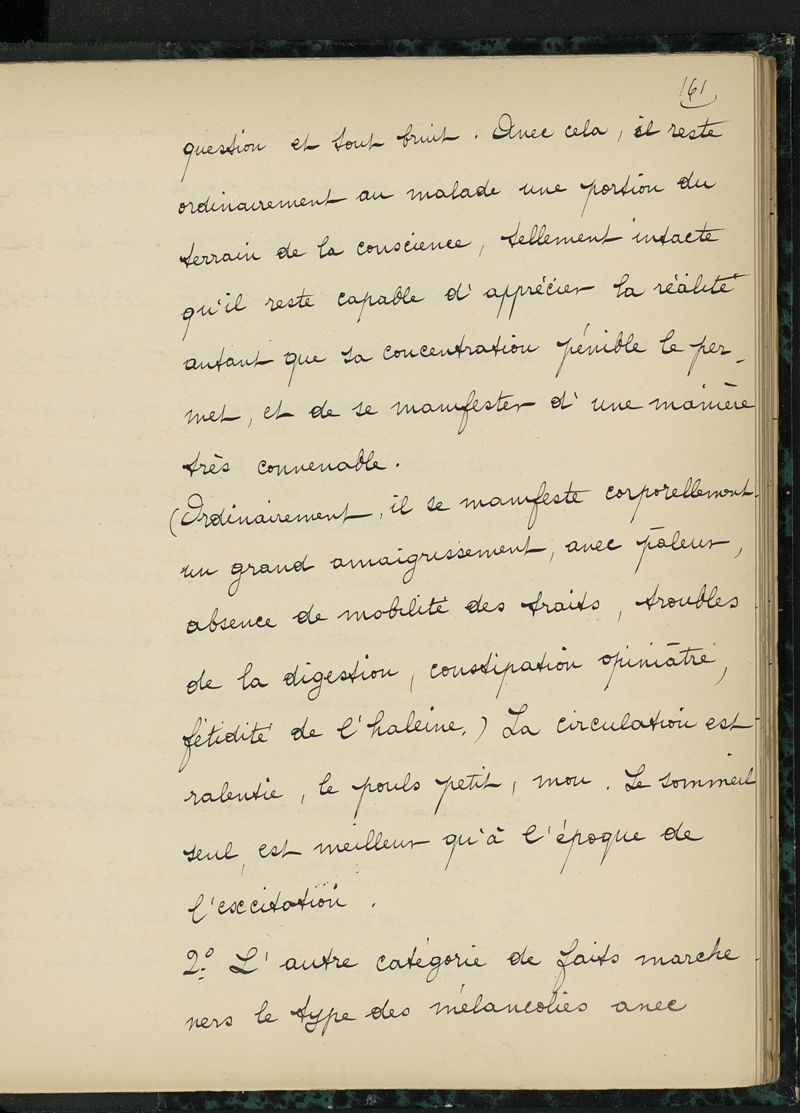 161
question et tout bruit. Avec cela, il reste
ordinairement au malade une portion du
terrain de la conscience, tellement intacte
qu'il reste capable d'apprécier la réalité
autant que sa concentration pénible le per-
met, et de se manifester d'une manière
très convenable.
(Ordinairement, il se manifeste corporellement
un grand amaigrissement, avec pâleur,
absence de mobilité des traits, troubles
de la digestion, constipation opiniâtre,
fétidité de l'haleine.) La circulation est
ralentie, le pouls petit, mou. Le sommeil
seul, est meilleur qu'à l'époque de
l'excitation.
2º. L'autre catégorie de faits marche
vers le type des mélancolies avec